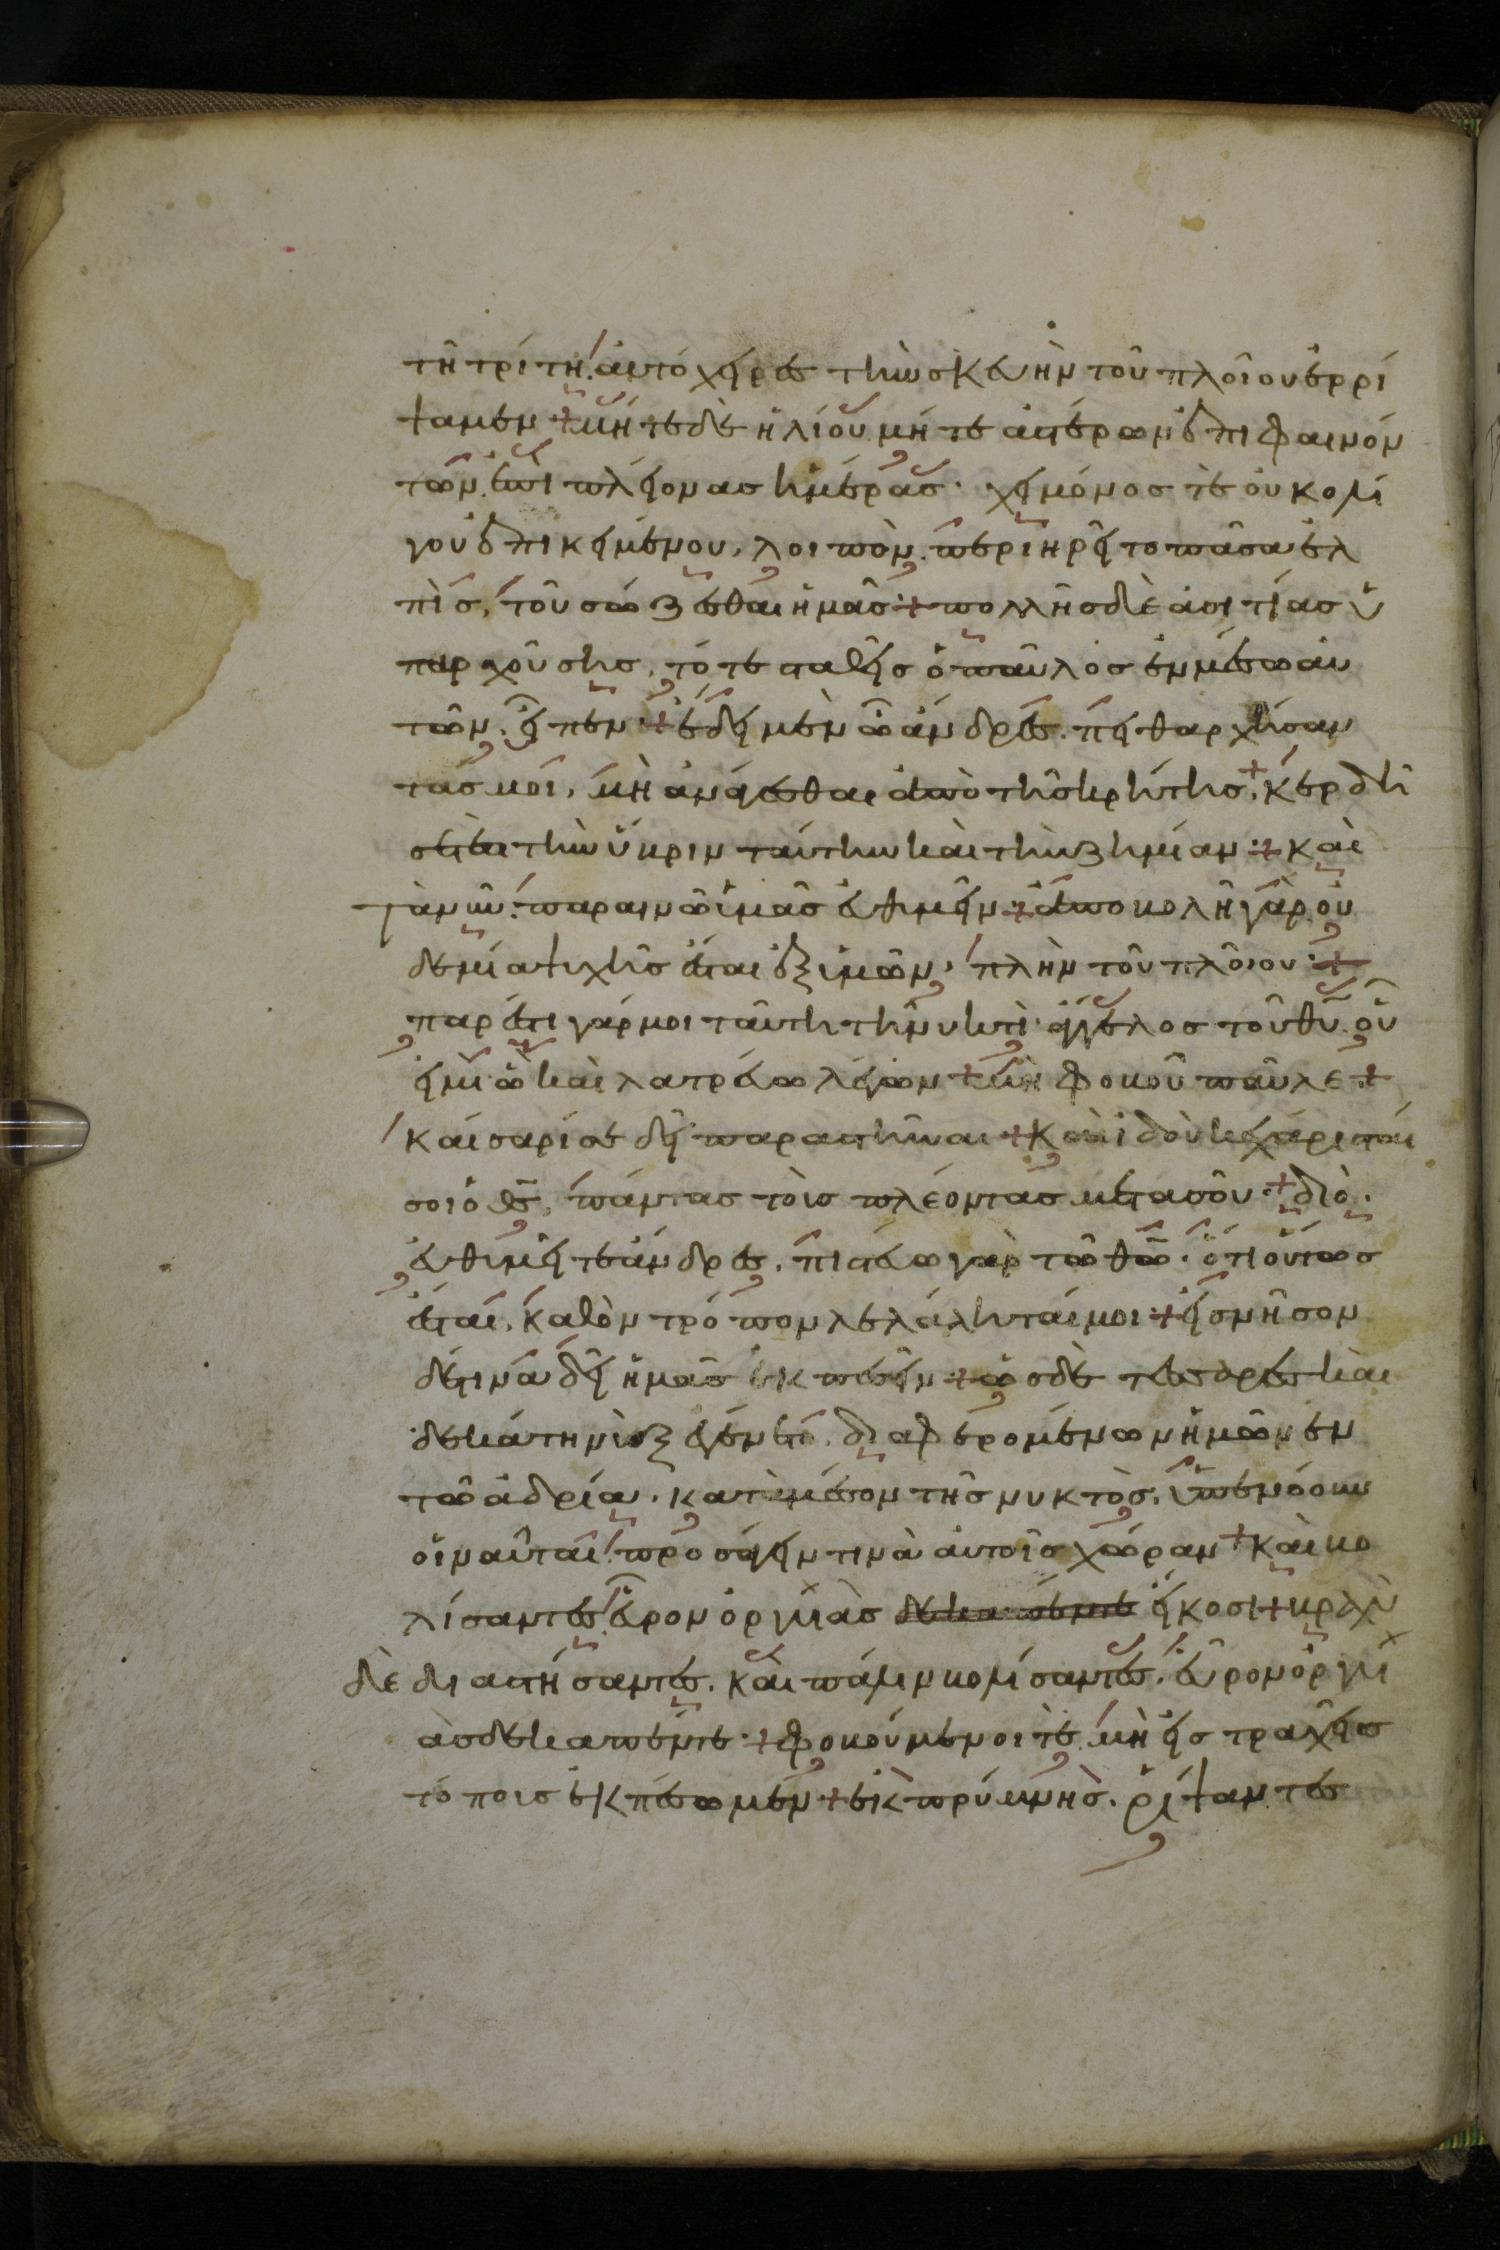 τῆ τρίτη. ἀυτόχειρες τὴν σκευὴν τοῦ πλοίου ἐρρί
ψαμεν + μήτε δὲ ἡλίου μήτε ἀστέρων ἐπιφαινόν
των. ἐπι πλείονας ἡμέρας · χειμόνος τὲ οὐκ ολί
γου ἐπικειμένου, λοιπὸν. περιηρεῖτο πᾶσα ἐλ
πὶς, τοῦ σώζεσθαι ἡμᾶς + πολλῆς δὲ ἀσιτίας ὑ
παρχούσης, τότε σταθεὶς ὁ παῦλος ἐν μέσω ἀυ
τῶν. εἶπεν + ἔδει μὲν ὦ ἄνδρες. πειθαρχήσαν
τάς μοι, μὴ ἀνάγεσθαι ἀπὸ τῆς κρήτης + κερδῆ
σαί τε τὴν ὕβριν ταύτην καὶ τὴν ζημίαν + καὶ
τανῦν. παραινῶ ὑμᾶς ἐυθυμεῖν + ἀποβολὴ γὰρ οὐ
δεμία ψυχῆς ἔσται ἐξ ὑμῶν, πλὴν τοῦ πλοίου +
παρέστη γάρ μοι ταύτη τῆ νυκτὶ ἄγγελος τοῦ θυ. οὗ
εἰμὶ ὧ καὶ λατρεύω λέγων + μὴ φοβοῦ παῦλε +
καίσαρί σε δεῖ παραστῆναι + καὶ ἰδοὺ κεχάρισταί
σοι ὁ θς, πάντας τοὺς πλέοντας μετὰ σοῦ + διὸ.
ἐυθυμεῖτε ἄνδρες. πιστεύω γὰρ τῶ θω. ὅτι οὕτως
ἔσται, καθ ὃν τρόπον λελάληταί μοι + εἰς νῆσον
δέ τινα δεῖ ἡμᾶς ἐκπεσεῖν + ὡς δὲ τεσσαρες και
δεκάτη νὺξ ἐγένετο, διαφερομένων ἡμῶν ἐν
τῶ ἀδρία. κατὰ μέσον τῆς νυκτὸς, ὑπενόουν
οἱ ναῦται προσάγειν τινὰ ἀυτοῖς χώραν + καὶ βο
λίσαντες, εὗρον ὀργυιὰς δεκαπέντε εἴκοσι + βραχὺ
δὲ διαστήσαντες. καὶ πάλιν βολίσαντες. εὗρον ὀργυι
ὰς δεκαπέντε + φοβούμενοι τὲ, μὴ εἰς τραχεῖς
τόπους ἐκπέσωμεν + ἐκ πρύμνης. ῥίψαντες